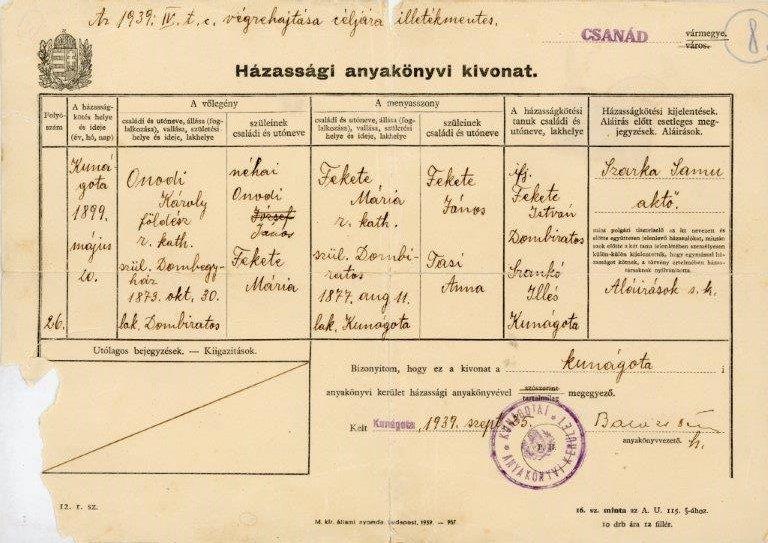 Az 1939: IV. t. c. végrehajtása céljára illetékmentes.
CSANÁD vármegye.
város.
8.
Házassági anyakönyvi kivonat.
Folyó-
szám
A házasság-
kötés helye
és ideje
(év, hó, nap)
A vőlegény
családi és utóneve, állása (fog-
lalkozása), vallása, születési
helye és ideje, lakhelye
szüleinek
családi és utóneve
A menyasszony
családi és utóneve, állása (fog-
lalkozása), vallása, születési
helye és ideje, lakhelye
szüleinek
családi és utóneve
A házasságkötési
tanuk családi és
utóneve, lakhelye
Házasságkötési kijelentések.
Aláírás előtt esetleges meg-
jegyzések. Aláírások.
26.
Kuná-
gota
1899.
május
20.
Onodi
Károly
földész
r. kath.
szül. Dombegy-
ház
1873. okt. 30.
lak. Dombiratos
néhai
Onodi
József
János
Fekete
Mária
Fekete
Mária
r. kath.
szül. Dombi-
ratos
1877. aug 11.
lak. Kunágota
Fekete
János
Tasi
Anna
ifj.
Fekete
István
Dombiratos
Frankó
Illés
Kunágota
Szarka Samu
aktő.
mint polgári tisztviselő az itt nevezett és
előtte együttesen jelenlevő házasulókat, miután
azok előtte a két tanu jelenlétében személyesen
külön-külön kijelentették, hogy egymással há-
zasságot kötnek, a törvény értelmében házas-
társaknak nyilvánította.
Aláírások s. k.
Utólagos bejegyzések. — Kiigazítások.
Bizonyítom, hogy ez a kivonat a kunágota i
anyakönyvi kerület házassági anyakönyvével szószerint megegyező.
tartalmilag
Kelt Kunágota, 1939. szept.
KUNÁGOTAI
ANYAKÖNYVI KERÜLET
P. H.
anyakönyvvezető.
h.
12. r. sz.
M. kir. állami nyomda, Budapest, 1939. — 957.
16. sz. minta az A. U. 115. §-ához.
10 drb ára 12 fillér.